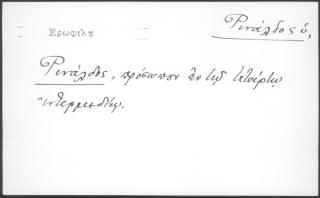 Ἐρωφίλη
Ρινάλδος ὁ,
Ρινάλδος, πρόσωπον ἐν τῷ τετάρτῳ
ἰντερμεδίῳ.